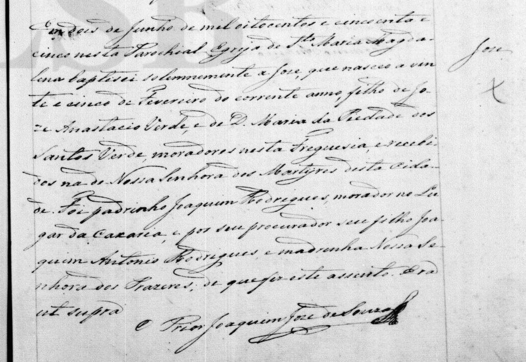 Em dois de Junho de mil oitocentos e cincoenta e
cinco nesta Parochial Egreja de Sta. Maria Magda-
lena baptisei solemnemente a José, que nasceo a vin-
te e cinco de Fevereiro do corrente anno, filho de Jo-
ze Anastacio Verde, e de D. Maria da Piedade dos
Santos Verde, moradores nesta Freguesia, e recebi-
dos na de Nossa Senhora dos Martyres desta Cida-
de. Foi padrinho Joaquim Rodrigues, morador no Lu-
gar da e por seu procurador seu filho Joa-
quim Antonio Rodrigues, e madrinha Nossa Se-
nhora dos Prazeres, de que fiz este assento. Era
ut supra
O Prior Joaquim José de Souza
José